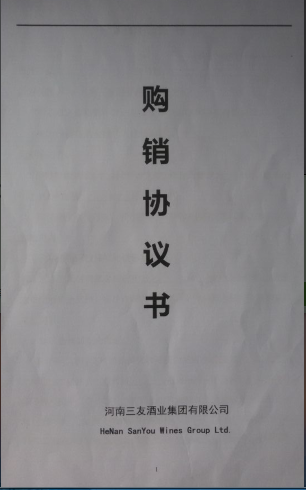 购销协议书
河南三友酒业集团有限公司
HeNan SanYou Wines Group Ltd.
1